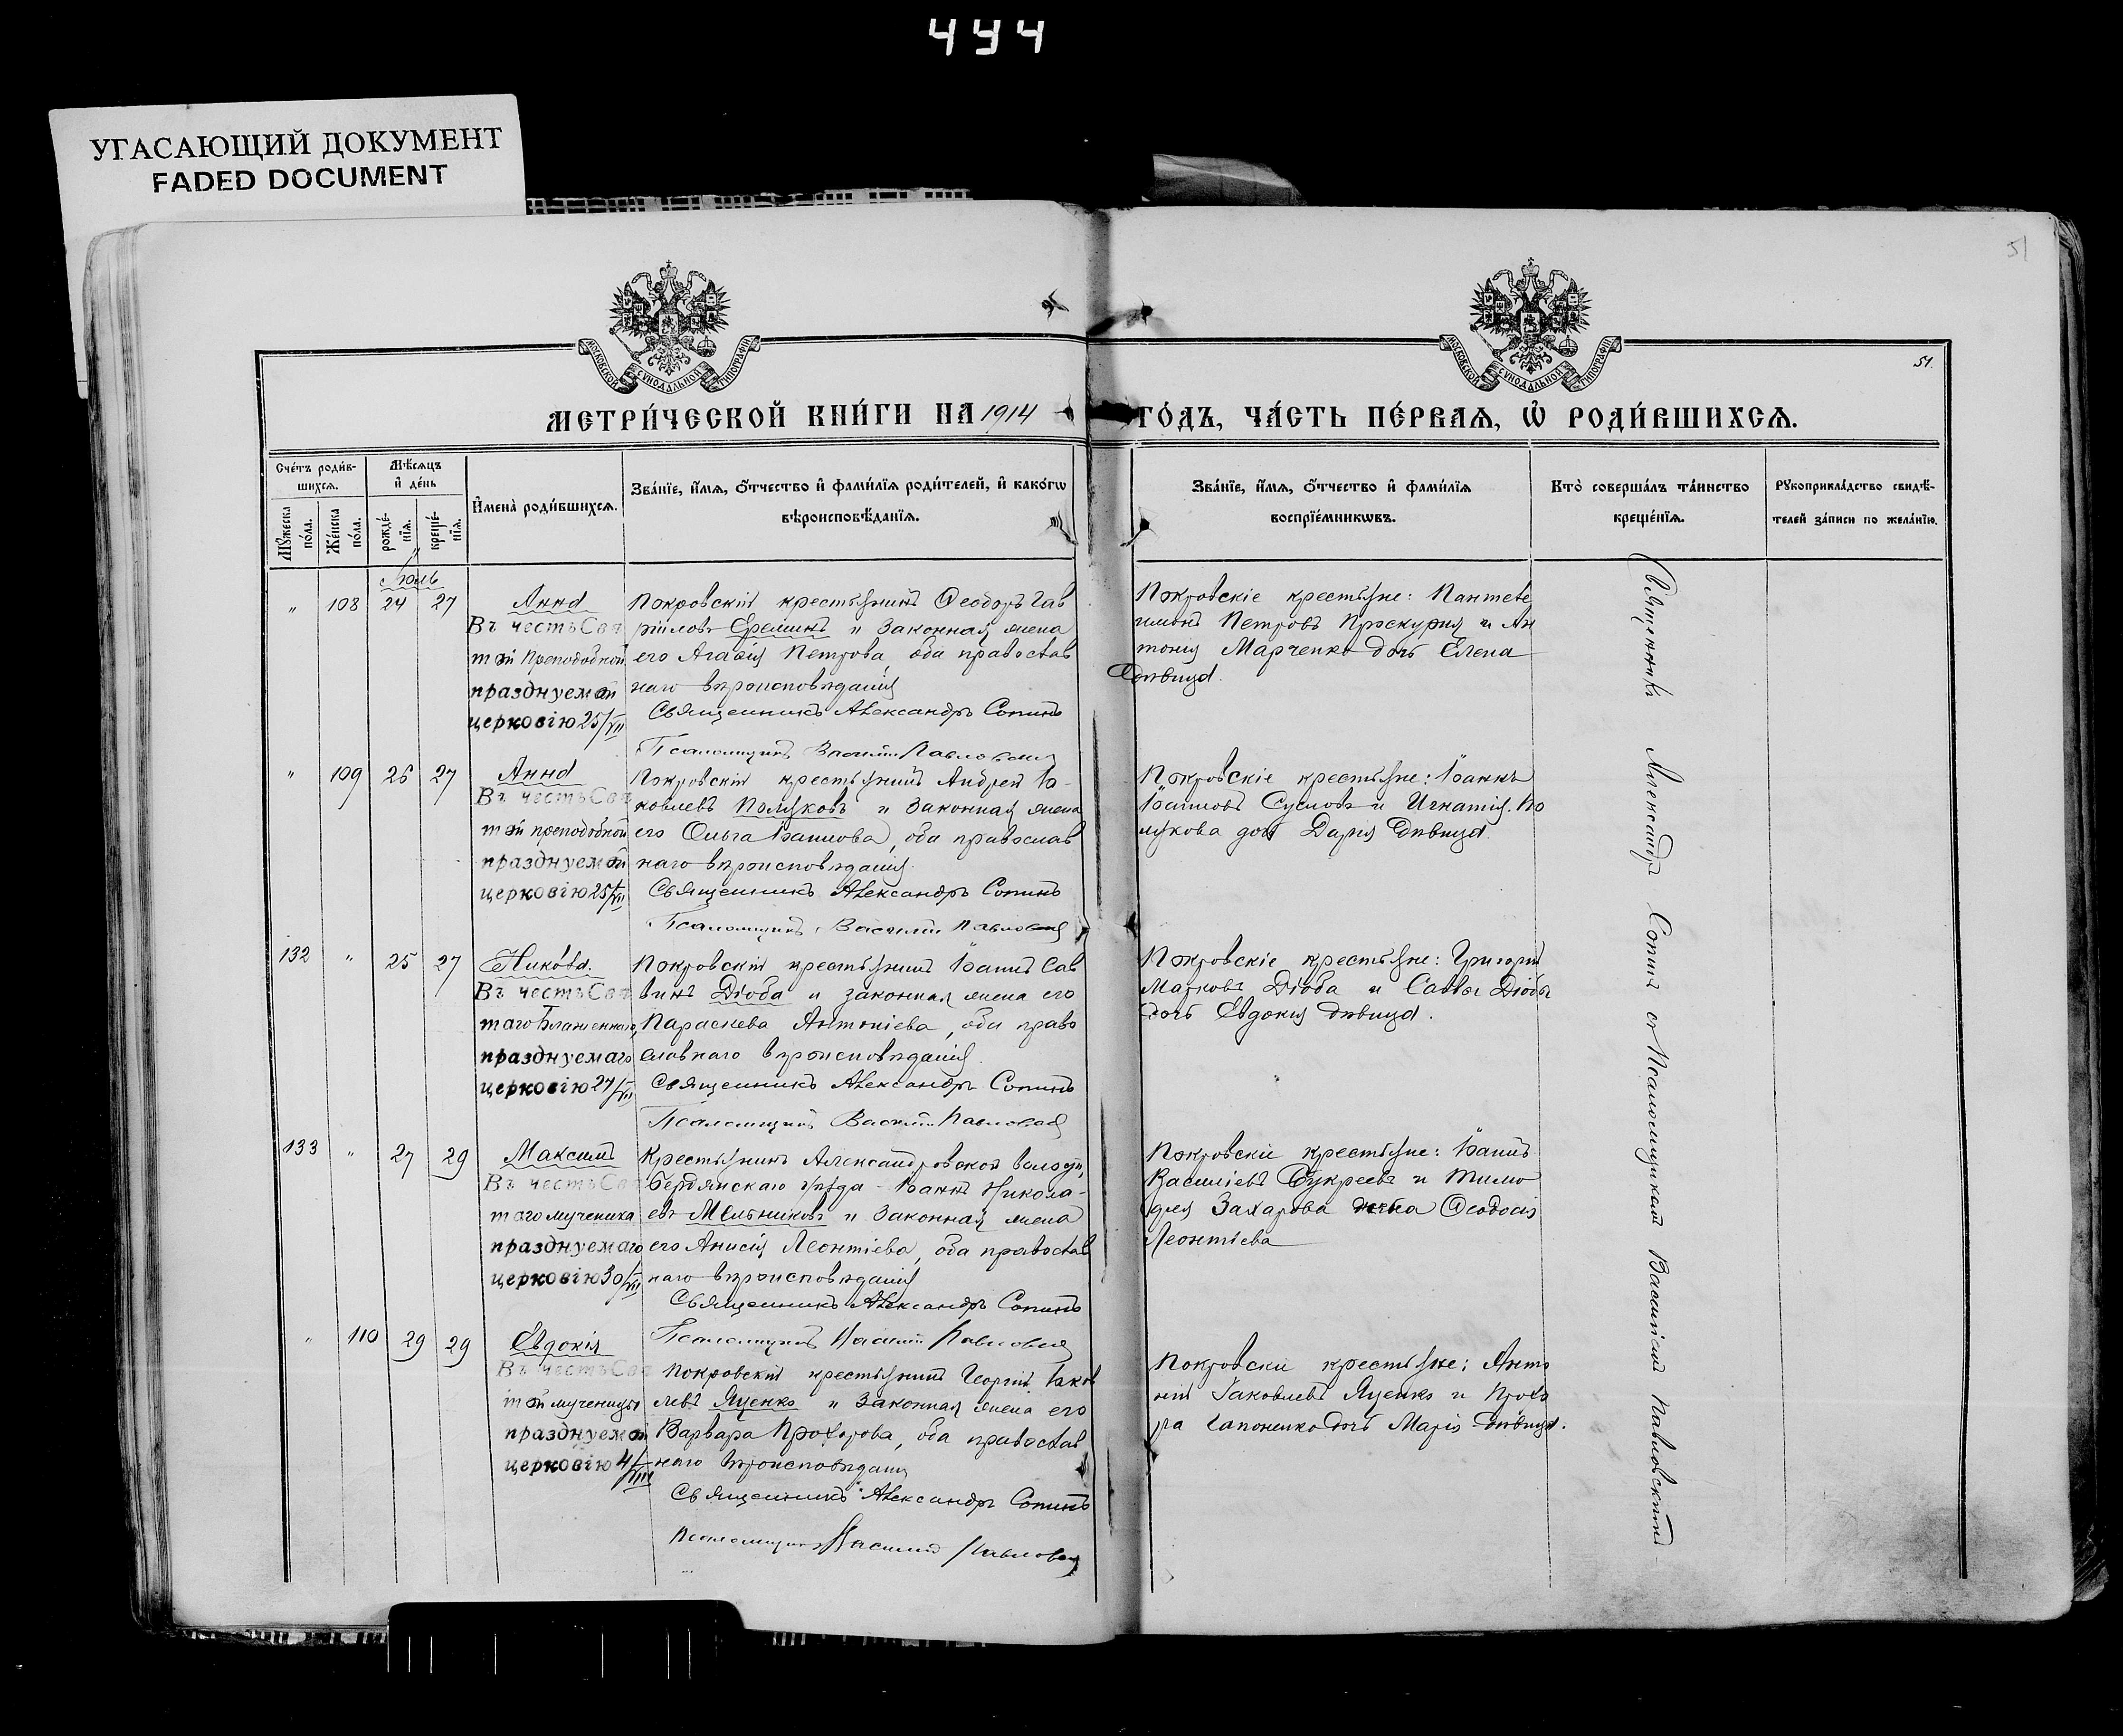 444
УГАСАЮЩИЙ ДОКУМЕНТ
FADED DOCUMENT
51
51.
МОСКОВСКОЙ СѴНОДАЛЬНОЙ ТИПОГРАФІИ
МОСКОВСКОЙ СѴНОДАЛЬНОЙ ТИПОГРАФІИ
МЕТРИ́ЧЕСКОЙ КНИ́ГИ НА 1914 ГО́ДЪ, ЧА́СТЬ ПЕ́РВАѦ, Ѡ҆ РОДИ́ВШИХСѦ.
Сче́тъ роди́в-
шихсѧ.
Мꙋжеска по́ла.
Же́нска по́ла.
Мѣ́сѧцъ
и҆ де́нь
рожде́-
нїѧ.
креще́-
нїѧ.
И҆мена̀ роди́вшихсѧ.
Зва́нїе, и҆́мѧ, ѻ҆́тчество и҆ фами́лїѧ роди́телей, и҆ како́гѡ
вѣроисповѣ́данїѧ.
Зва́нїе, и҆́мѧ, ѻ҆́тчество и҆ фами́лїѧ
воспрїе́мникѡвъ.
Кто̀ соверша́лъ та́инство
креще́нїѧ.
Рꙋкоприкла́дство свидѣ́-
телей за́писи по жела́нїю.
Іюль
" 108 24 27 Анна
Въ честь Свя
той Преподобной
празднуемой
церковію 25/VII
Покровскій крестьянинъ Ѳеодоръ Гав
ріиловъ Еремикъ и законная жена
его Агафія Петрова, оба православ
наго вѣроисповѣданія
Священникъ Александръ Сопинъ
Псаломщикъ Василій Павловскій
Покровскіе крестьяне: Пантеле
имонъ Петровъ Проскурня и Ан
тонія Марченко дочь Елена
дѣвица.
" 109 26 27 Анна
Въ честь Свя
той преподобной
празднуемой
церковію 25/VII
Покровскій крестьянинъ Андрей Іа-
ковлевъ Полуковъ и законная жена
его Ольга Іоаннова, оба православ
наго вѣроисповѣданія.
Священникъ Александръ Сопинъ
Псаломщикъ Василій Павловскій
Покровскіе крестьяне: Іоаннъ
Іоанновъ Сусловъ и Игнатія По
лукова дочь Дарія дѣвица.
132 " 25 27 Николай.
Въ честь Свя
таго Блаженнаго,
празднуемаго
церковію 27/VII
Покровскій крестьянинъ Іоаннъ Сав
винъ Дзюба и законная жена его
Параскева Антоніева, оба право
славнаго вѣроисповѣданія.
Священникъ Александръ Сопинъ
Псаломщикъ Василій Павловскій
Покровскіе крестьяне: Григорій
Марковъ Дзюба и Саввы Дзюбы
дочь Евдокія дѣвица.
133 " 27 29 Максимъ
Въ честь Свя
таго мученика
празднуемаго
церковію 30/VII
Крестьянинъ Александровской волости,
бердянскаго уѣзда - Іоаннъ Никола-
евъ Мельниковъ и законная жена
его Анисія Леонтіева, оба православ
наго вѣроисповѣданія
Священникъ Александръ Сопинъ
Псаломщикъ Василій Павловскій
Покровскіе крестьяне: Іоаннъ
Василіевъ Букреевъ и Тимо
фея Захарова жена Ѳеодосія
Леонтіева
" 110 29 29 Евдокія
Въ честь Свя
той мученицы
празднуемой
церковію 4/VIII
Покровскій крестьянинъ Георгій Іаков
левъ Яценко и законная жена его
Варвара Прохорова, оба православ
наго вѣроисповѣданія
Священникъ Александръ Сопинъ
Псаломщикъ Василій Павловскій
Покровскіе крестьяне: Анто
ній Іаковлевъ Яценко и Прохо
ра Гапоненко дочь Марія дѣвица.
Священникъ Александръ Сопинъ съ Псаломщикомъ Василіемъ Павловскимъ